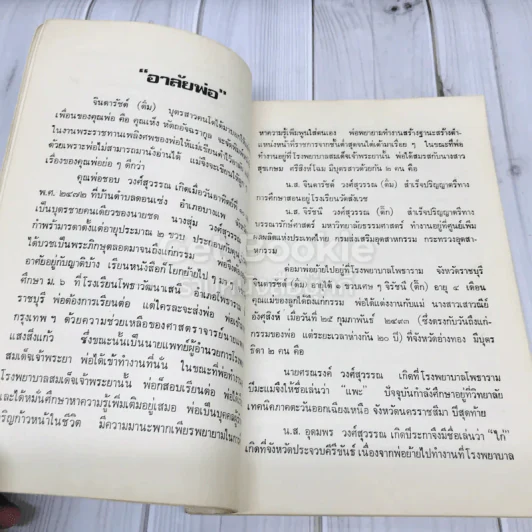 "อาลัยพ่อ"
จินดารัชต์ (ติ่ม) บุตรสาวคนโตได้
เพื่อนของคุณพ่อ คือ คุณเห้ง หัตถีอจฉรากูล
ในงานพระราชทานเพลิงศพของพ่อให้แม่เขียนคำไว้
ด้วยเพราะพ่อไม่สามารถมานั่งอ่านได้ แม่จึงจะเขียนให้
เรื่องของคุณพ่อย่อ ๆ ดีกว่า
คุณพ่อชอบ วงศ์สุวรรณ เกิดเมื่อวันอาทิตย์ที่
พ.ศ. ๒๔๗๒ ที่บ้านตำบลดอนเซ่ง อำเภอบางแพ
เป็นบุตรชายคนเดียวของนายชด นางสุ่ม วงศ์สุวรรณ
กำพร้ามารดาตั้งแต่อายุประมาณ ๒ ขวบ ประกอบกับ
ได้บวชเป็นพระภิกษุตลอดมาจนถึงแก่กรรม
อาศัยอยู่กับญาติบ้าง เรียนหนังสือก็โยกย้ายไป
ศึกษา ม. ๖ ที่โรงเรียนโพธาวัฒนาเสนี อำเภอโพธาราม
ราชบุรี พ่อต้องการเรียนต่อ แต่ใครล่ะจะส่งพ่อ
กรุงเทพฯ ด้วยความช่วยเหลือของศาสตราจารย์นายแพทย์
แสงสิงแก้ว ซึ่งขณะนั้นเป็นนายแพทย์ผู้อำนวยการ
สมเด็จเจ้าพระยา พ่อได้เข้าทำงานที่นั่น ในขณะที่พ่อทำงาน
โรงพยาบาลสมเด็จเจ้าพระยานั้น พ่อก็สอบเรียนต่อ พ่อ
และได้หมั่นศึกษาหาความรู้เพิ่มเติมอยู่เสมอ พ่อเป็นบุคคล
เจริญก้าวหน้าในชีวิต มีความมานะพากเพียรพยายามในการ
หาความรู้เพิ่มพูนใส่ตนเอง พ่อพยายามทำงานสร้างฐานะสร้างตำ-
แหน่งหน้าที่ราชการจากชั้นต่ำสุดจนไต่เต้ามาเรื่อย ๆ ในขณะที่พ่อ
ทำงานอยู่ที่โรงพยาบาลสมเด็จเจ้าพระยานั้น พ่อได้สมรสกับนางสาว
สุขเกษม ศรีสิงห์โฉม มีบุตรสาวด้วยกัน ๒ คน คือ
น.ส. จินดารัชต์ วงศ์สุวรรณ (ติ่ม) สำเร็จปริญญาตรีทาง
การศึกษาสอนอยู่โรงเรียนวัดสังเวช
น.ส. จิรัชน์ วงศ์สุวรรณ (ติ๊ก) สำเร็จปริญญาตรีทาง
บรรณารักษ์ศาสตร์ มหาวิทยาลัยธรรมศาสตร์ ทำงานอยู่ที่ศูนย์เพิ่ม
ผลผลิตแห่งประเทศไทย กรมส่งเสริมอุตสาหกรรม กระทรวงอุตสา-
หกรรม
ต่อมาพ่อย้ายไปอยู่ที่โรงพยาบาลโพธาราม จังหวัดราชบุรี
จินดารัชต์เพิ่งอายุได้ ๖ ขวบเศษ ๆ จิรัชน์ (ติ๊ก) อายุ ๔ เดือน
คุณแม่ของลูกได้ถึงแก่กรรม พ่อได้แต่งงานกับแม่ นางสาวเสาวณีย์
อังศุสิงห์ เมื่อวันที่ ๒๕ กุมภาพันธ์ ๒๔๙๓ (ซึ่งตรงกับวันถึงแก่-
กรรมของพ่อ แต่ระยะเวลาห่างกัน ๒๐ ปี) ที่จังหวัดอ่างทอง มีบุตร
ธิดา ๒ คน คือ
นายศรณรงค์ วงศ์สุวรรณ เกิดที่โรงพยาบาลโพธาราม
ปีมะแมจึงให้ชื่อเล่นว่า "แพะ" ปัจจุบันกำลังศึกษาอยู่ที่วิทยาลัย
เทคนิคภาคตะวันออกเฉียงเหนือ จังหวัดนครราชสีมา ปีสุดท้าย
น.ส. อุดมพร วงศ์สุวรรณ เกิดปีระกาจึงมีชื่อเล่นว่า "ไก่"
เกิดที่จังหวัดประจวบคีรีขันธ์ เนื่องจากพ่อย้ายไปทำงานที่โรงพยาบาล